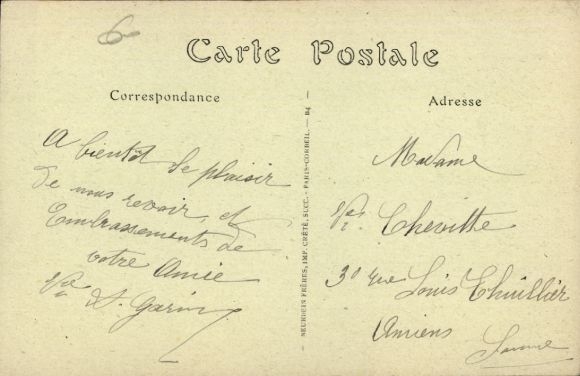 6
Carte Postale
Correspondance
Adresse
A bientôt le plaisir
de nous revoir, et
Embrassements de
votre Amie
Vve D. Garin
NEURDEIN FRÈRES, IMP. CRÉTÉ, SUCC. - PARIS-CORBEIL. — B4
Madame
Vve Chevitte
30 rue Louis Thuillier
Amiens
Somme